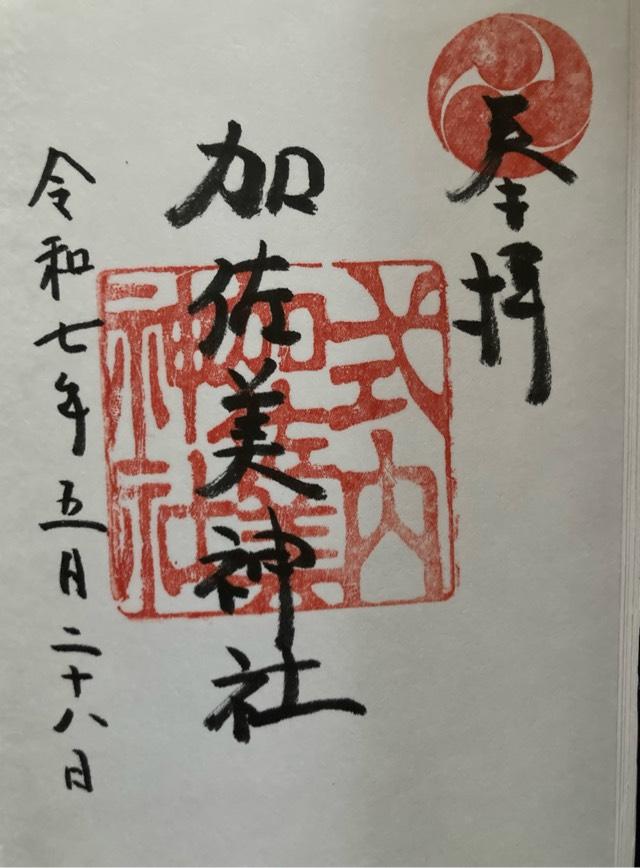 奉拝
加佐美神社
式内
加佐美
神社
令和七年五月二十八日